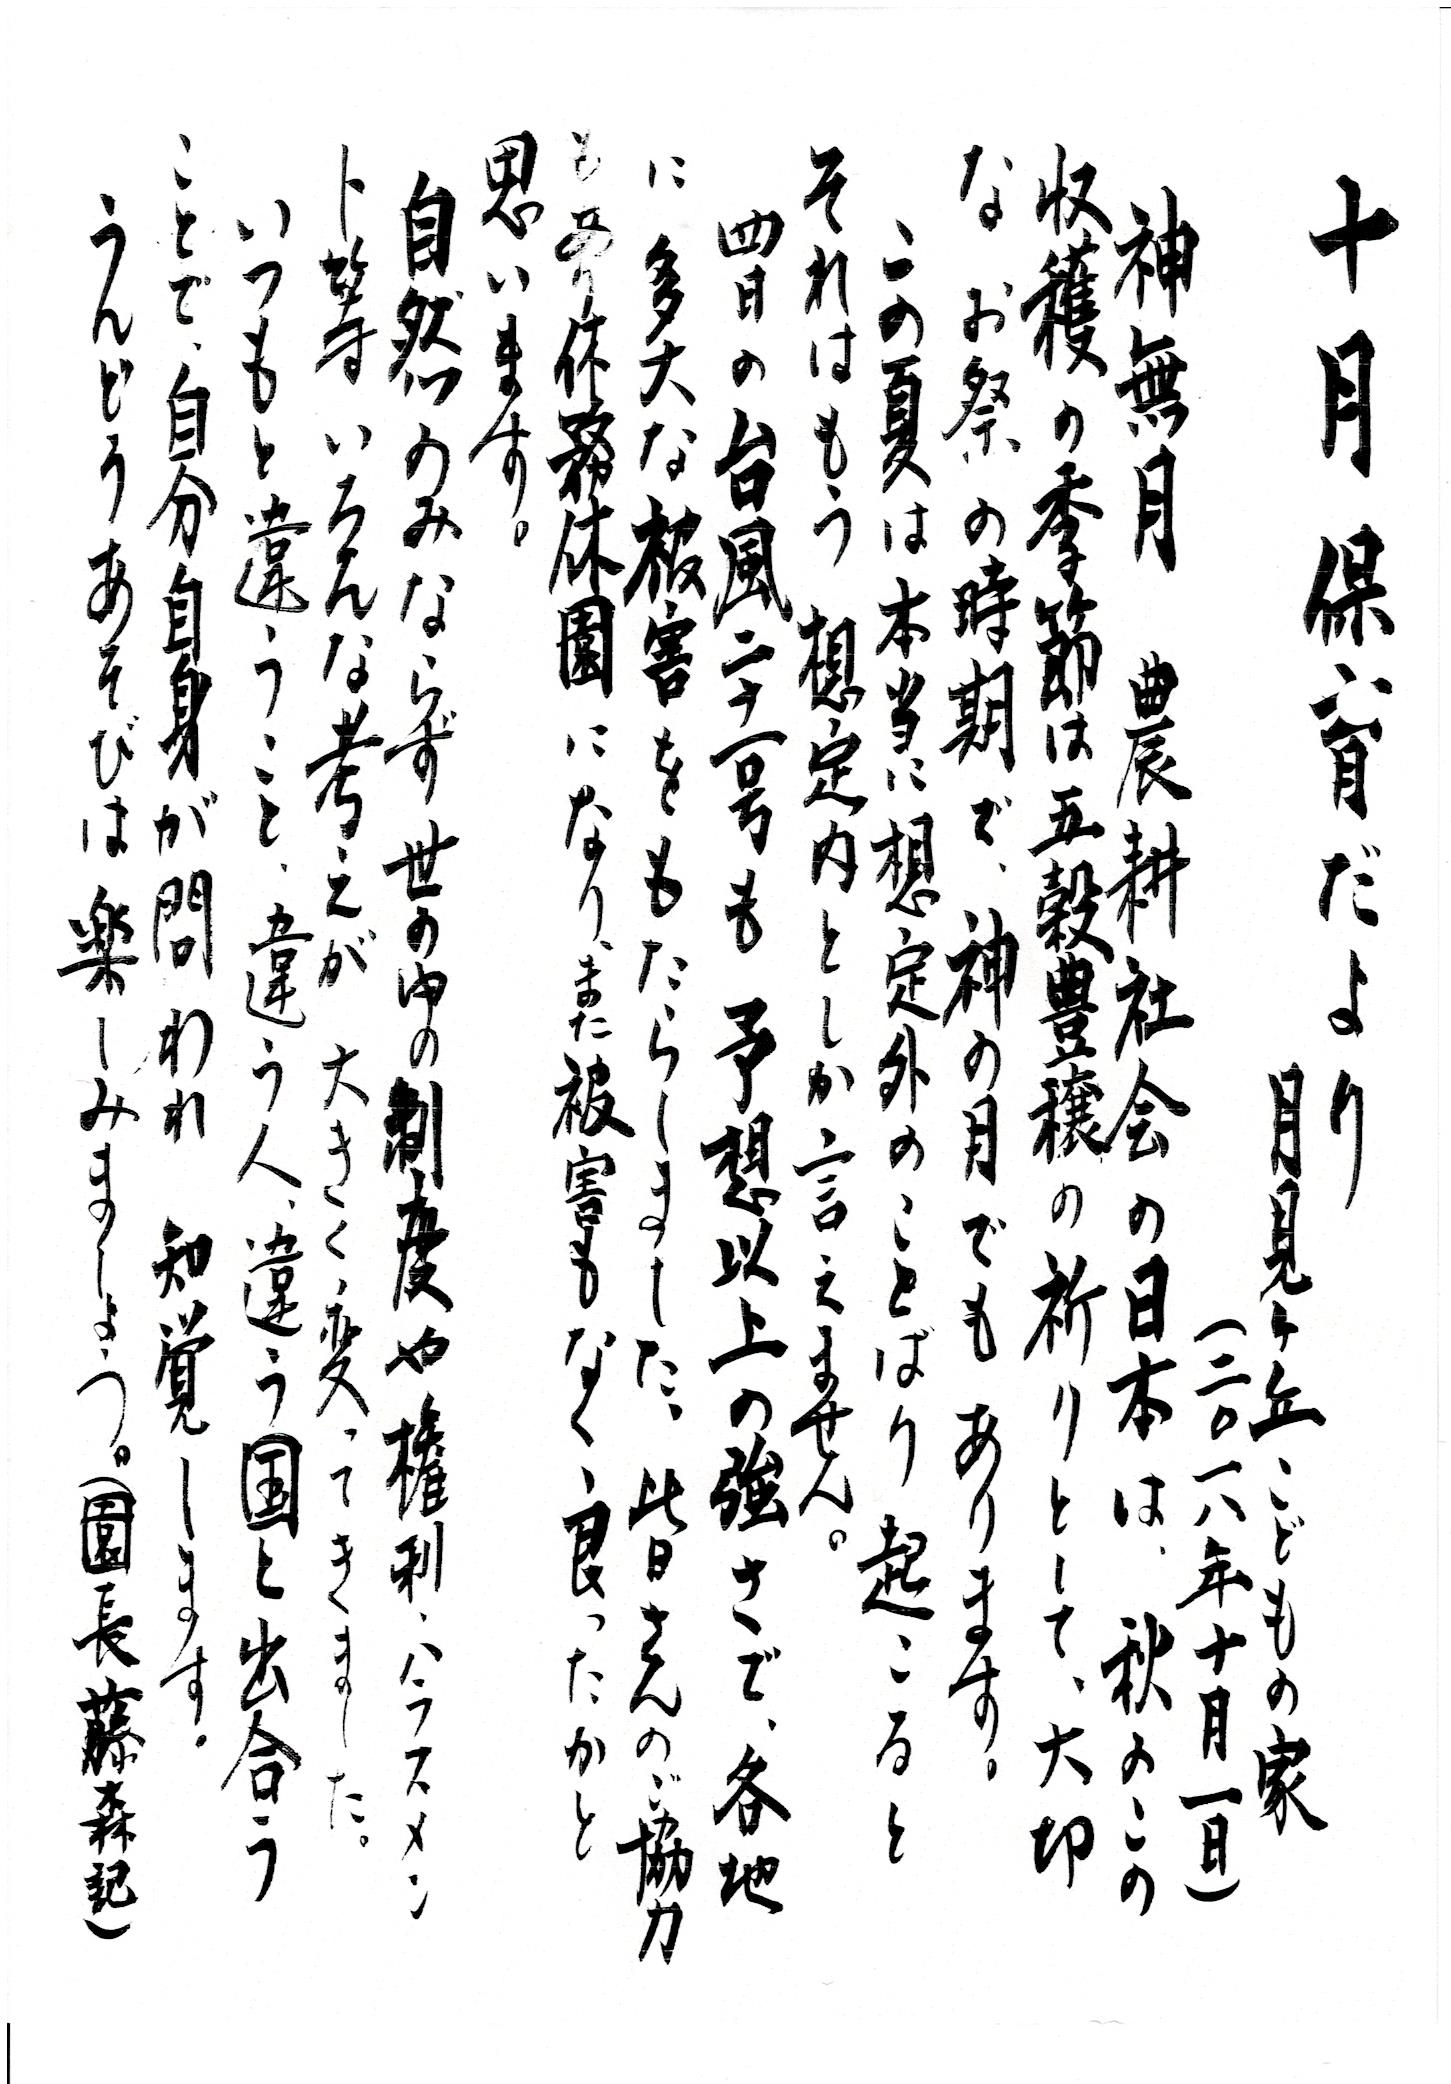 十月保育だより
月見ヶ丘こどもの家
(二〇一八年十月一日)
神無月 農耕社会の日本は、秋のこの
収穫の季節は五穀豊穣の祈りとして、大切
なお祭の時期で、神の月でもあります。
この夏は本当に想定外のことばり起こると
それはもう 想定内としか言えません。
四日の台風二十一号も 予想以上の強さで、各地
に多大な被害をもたらしました、皆さんのご協力
もあり休務休園になり、また被害もなく、良ったかと
思います。
自然のみならず 世の中の制度や権利、ハラスメン
ト等いろんな考えが 大きく変ってきました。
いつもと違うこと、違う人、違う国と出合う
ことで、自分自身が問われ 知覚します。
うんどうあそびは楽しみましょう。(園長藤森記)